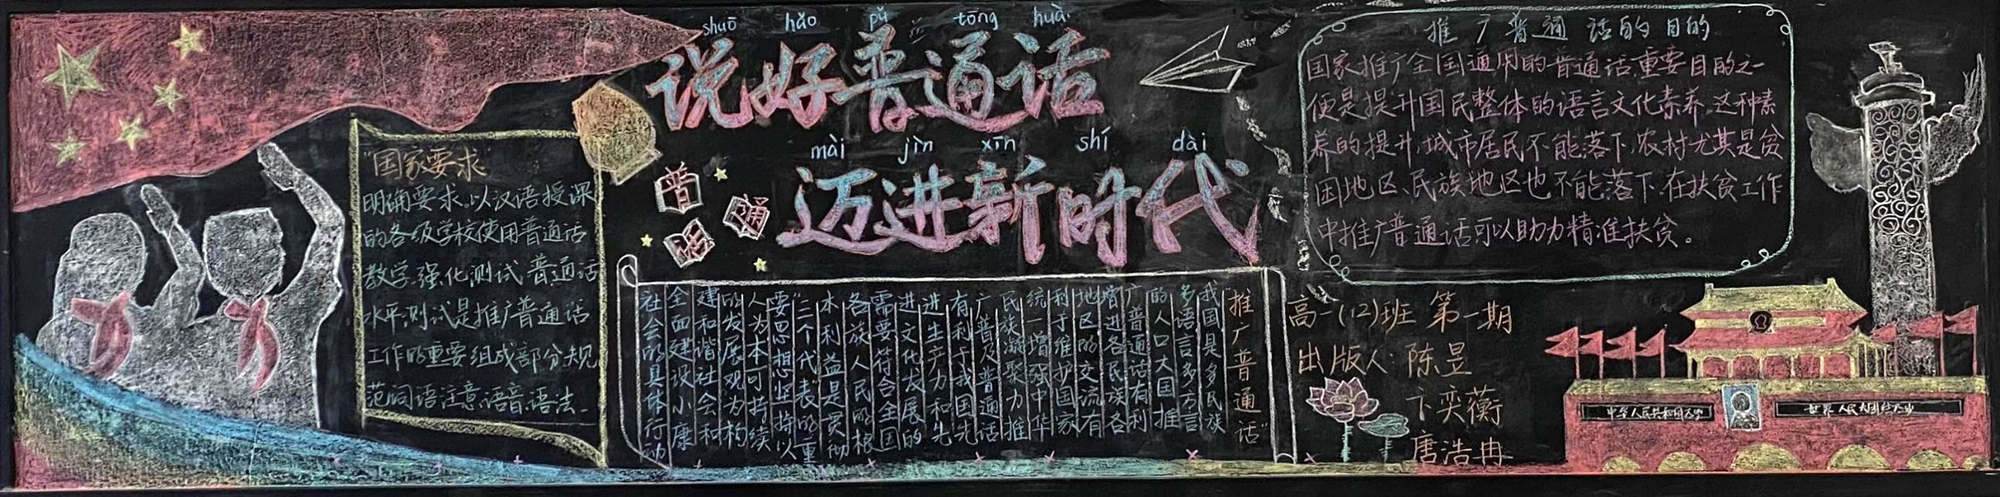 shuō hǎo pǔ tōng huà
说好普通话
mài jìn xīn shí dài
迈进新时代
普
通
明
"国家要求
明确要求,以汉语授课
的各级学校使用普通话
教学,强化测试,普通话
水平测试是推广普通话
工作的重要组成部分,规
范词语注意语音,语法。
推广普通话"
我国是多民族
多语言多方言
的人口大国推
广普通话有利
增进各民族各
地区的交流有
利于维护国家
统一增强中华
民族凝聚力推
广普及普通话
有利于我国先
进生产力和先
进文化发展的
需要符合全国
各族人民的根
本利益是贯彻
"三个代表"的重
要思想坚持以
人为本可持续
的发展观为构
建和谐社会和
全面建设小康
社会的具体行动
推广普通话的目的
国家推广全国通用的普通话,重要目的之一
便是提升国民整体的语言文化素养,这种素
养的提升,城市居民不能落下,农村尤其是贫
困地区、民族地区也不能落下,在扶贫工作
中推广普通话可以助力精准扶贫。
高一(12)班 第一期
出版人:陈昱
卞奕蘅
唐浩冉
中华人民共和国万岁
世界人民大团结万岁